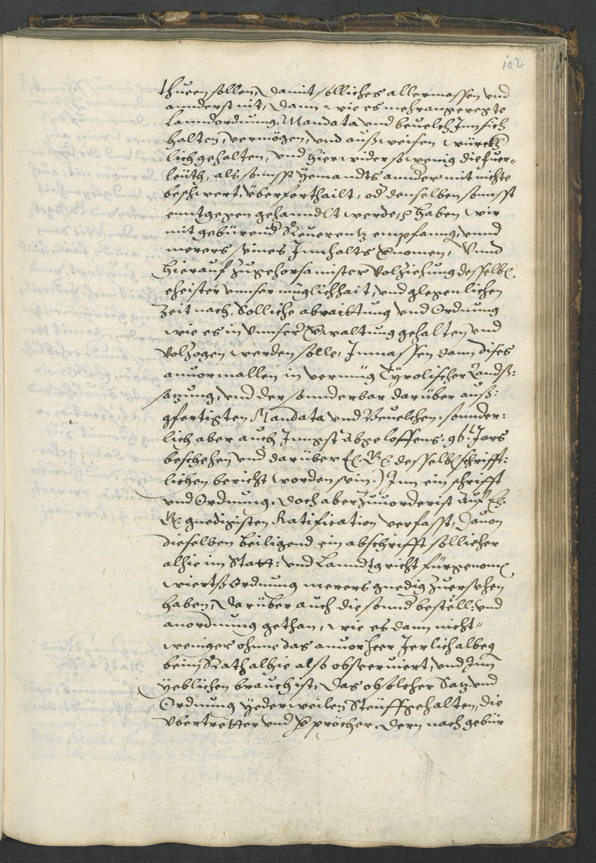 102
thuen sollen, damit sölliches allermassen und
annderst nit, dann wie es mehrangeregte
Lanndordnung, Mandata und beuelch Innsich
halten, vermögen, und außweisen, würckh
lich gehalten, und hierwider so wenig die fuer-
leüth, als sonnst yemandts annder mit nichte
beschwert, überforthailt, od denselben sonnsst
enntgegen gehanndlt werde, haben wir
mit gebürend Reuerentz empfanng, unnd
merers seines Innhalts vernomen, Unnd
hierauf zu gehorsamister Volziehung desselb
eheister unnser müglichhait, und glegenlichen
Zeit nach, Solliche abraittung und Ordnung
wie es in unnser Verwaltung gehalten und
Volzogen werden solle, Inmassen dann dises
anuormallen in vermüg Tyrolischer Lands-
satzung, und der sonnderbar darüber auß-
gfertigten Mandata und Beuelchen, sonnder-
lich aber auch Jungst abgeloffens 96 Jars
beschehen und darüber desselb schrifft-
lichen bericht worden sein, Inn ein schrifft
und Ordnung, doch aber zuuorderist auf
gnedigisten Ratification verfasst, dauon
dieselben beiligend ein abschrifft sollicher
alhie im Statt- und Lanndtgricht fürgenom
wierts Ordnung merers gnedig zuersehen
haben, darüber auch die sonnd bestell und
anordnung gethan, wie es dann nicht-
weniger ohne das anuorheer Jerlich alweg
beim Rath alhie also obseruiert, und Inn
yeblichen brauch ist, das ob solcher Satz und
Ordnung yederweilen Steiff gehalten, die
Übertretter und Verprecher, dern nach gebür